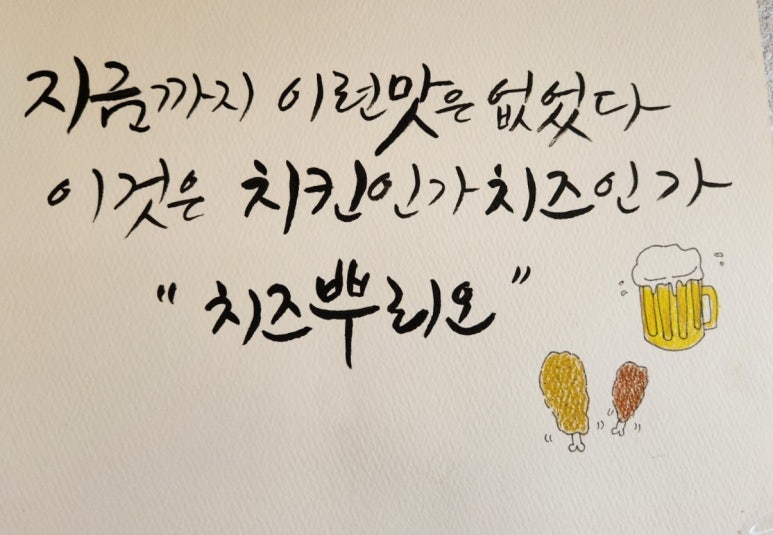 지금까지 이런맛은 없었다
이것은 치킨인가 치즈인가
"치즈뿌리오"